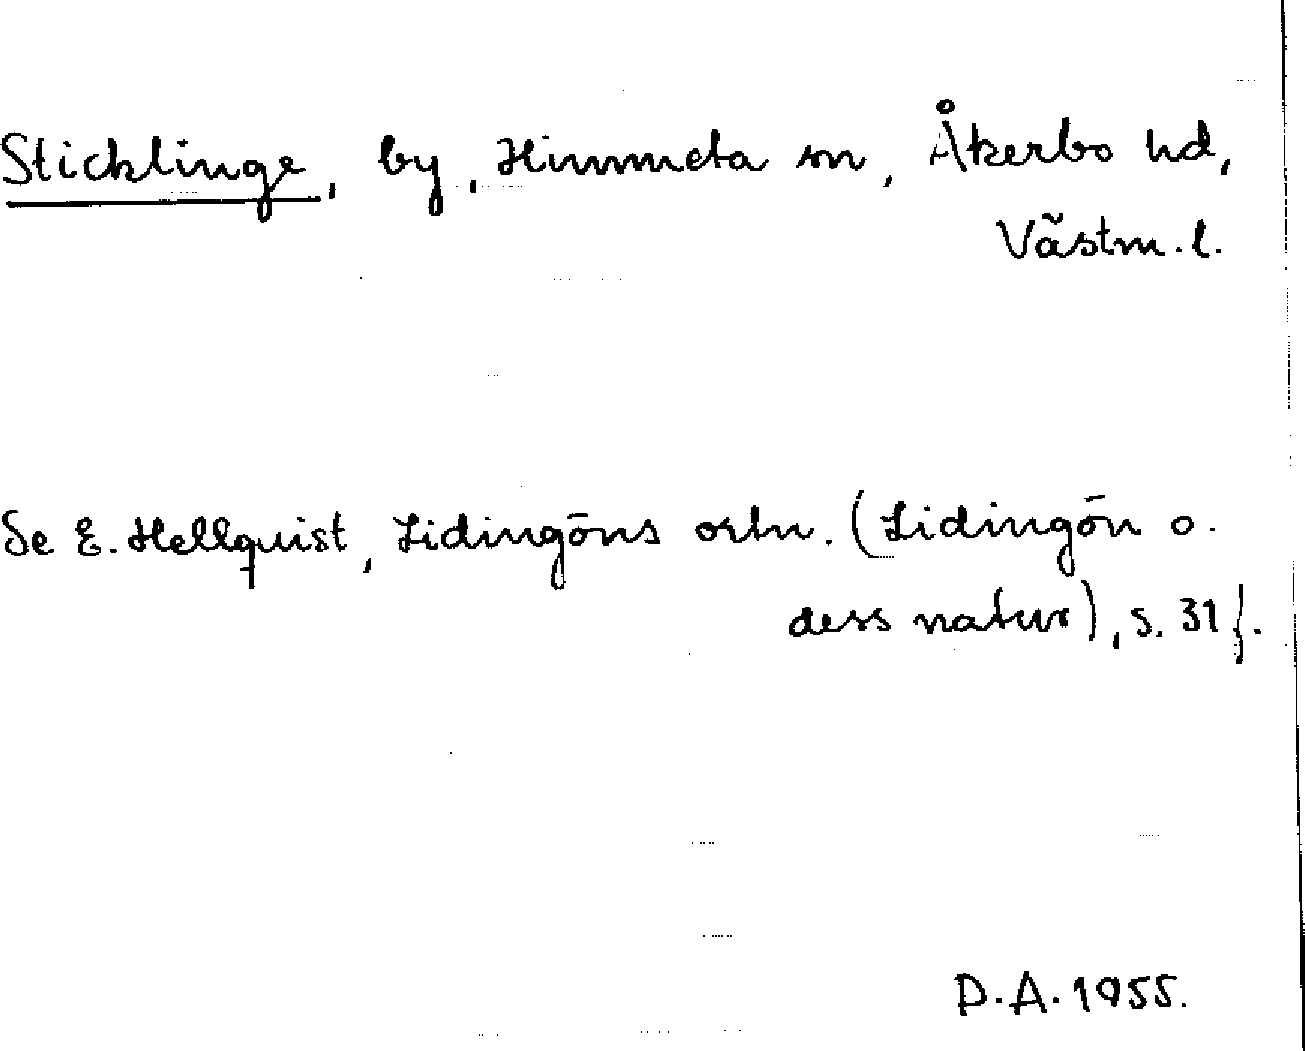 Sticklinge, by, Himmeta sn, Åkerbo hd,
Västm. l.
Se E. Hellquist, Lidingöns ortn. (Lidingön o.
dess natur), s. 31 f.
D. A. 1955.